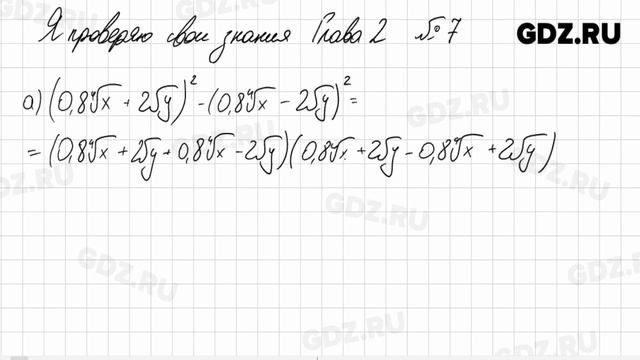 Я проверяю свои знания Глава 2 № 7
GDZ.RU
а) (0,8∜x + 2√y)² - (0,8∜x - 2√y)² =
= (0,8∜x + 2√y + 0,8∜x - 2√y)(0,8∜x + 2√y - 0,8∜x + 2√y)
GDZ.RU
GDZ.RU
GDZ.RU
GDZ.RU
GDZ.RU
GDZ.RU